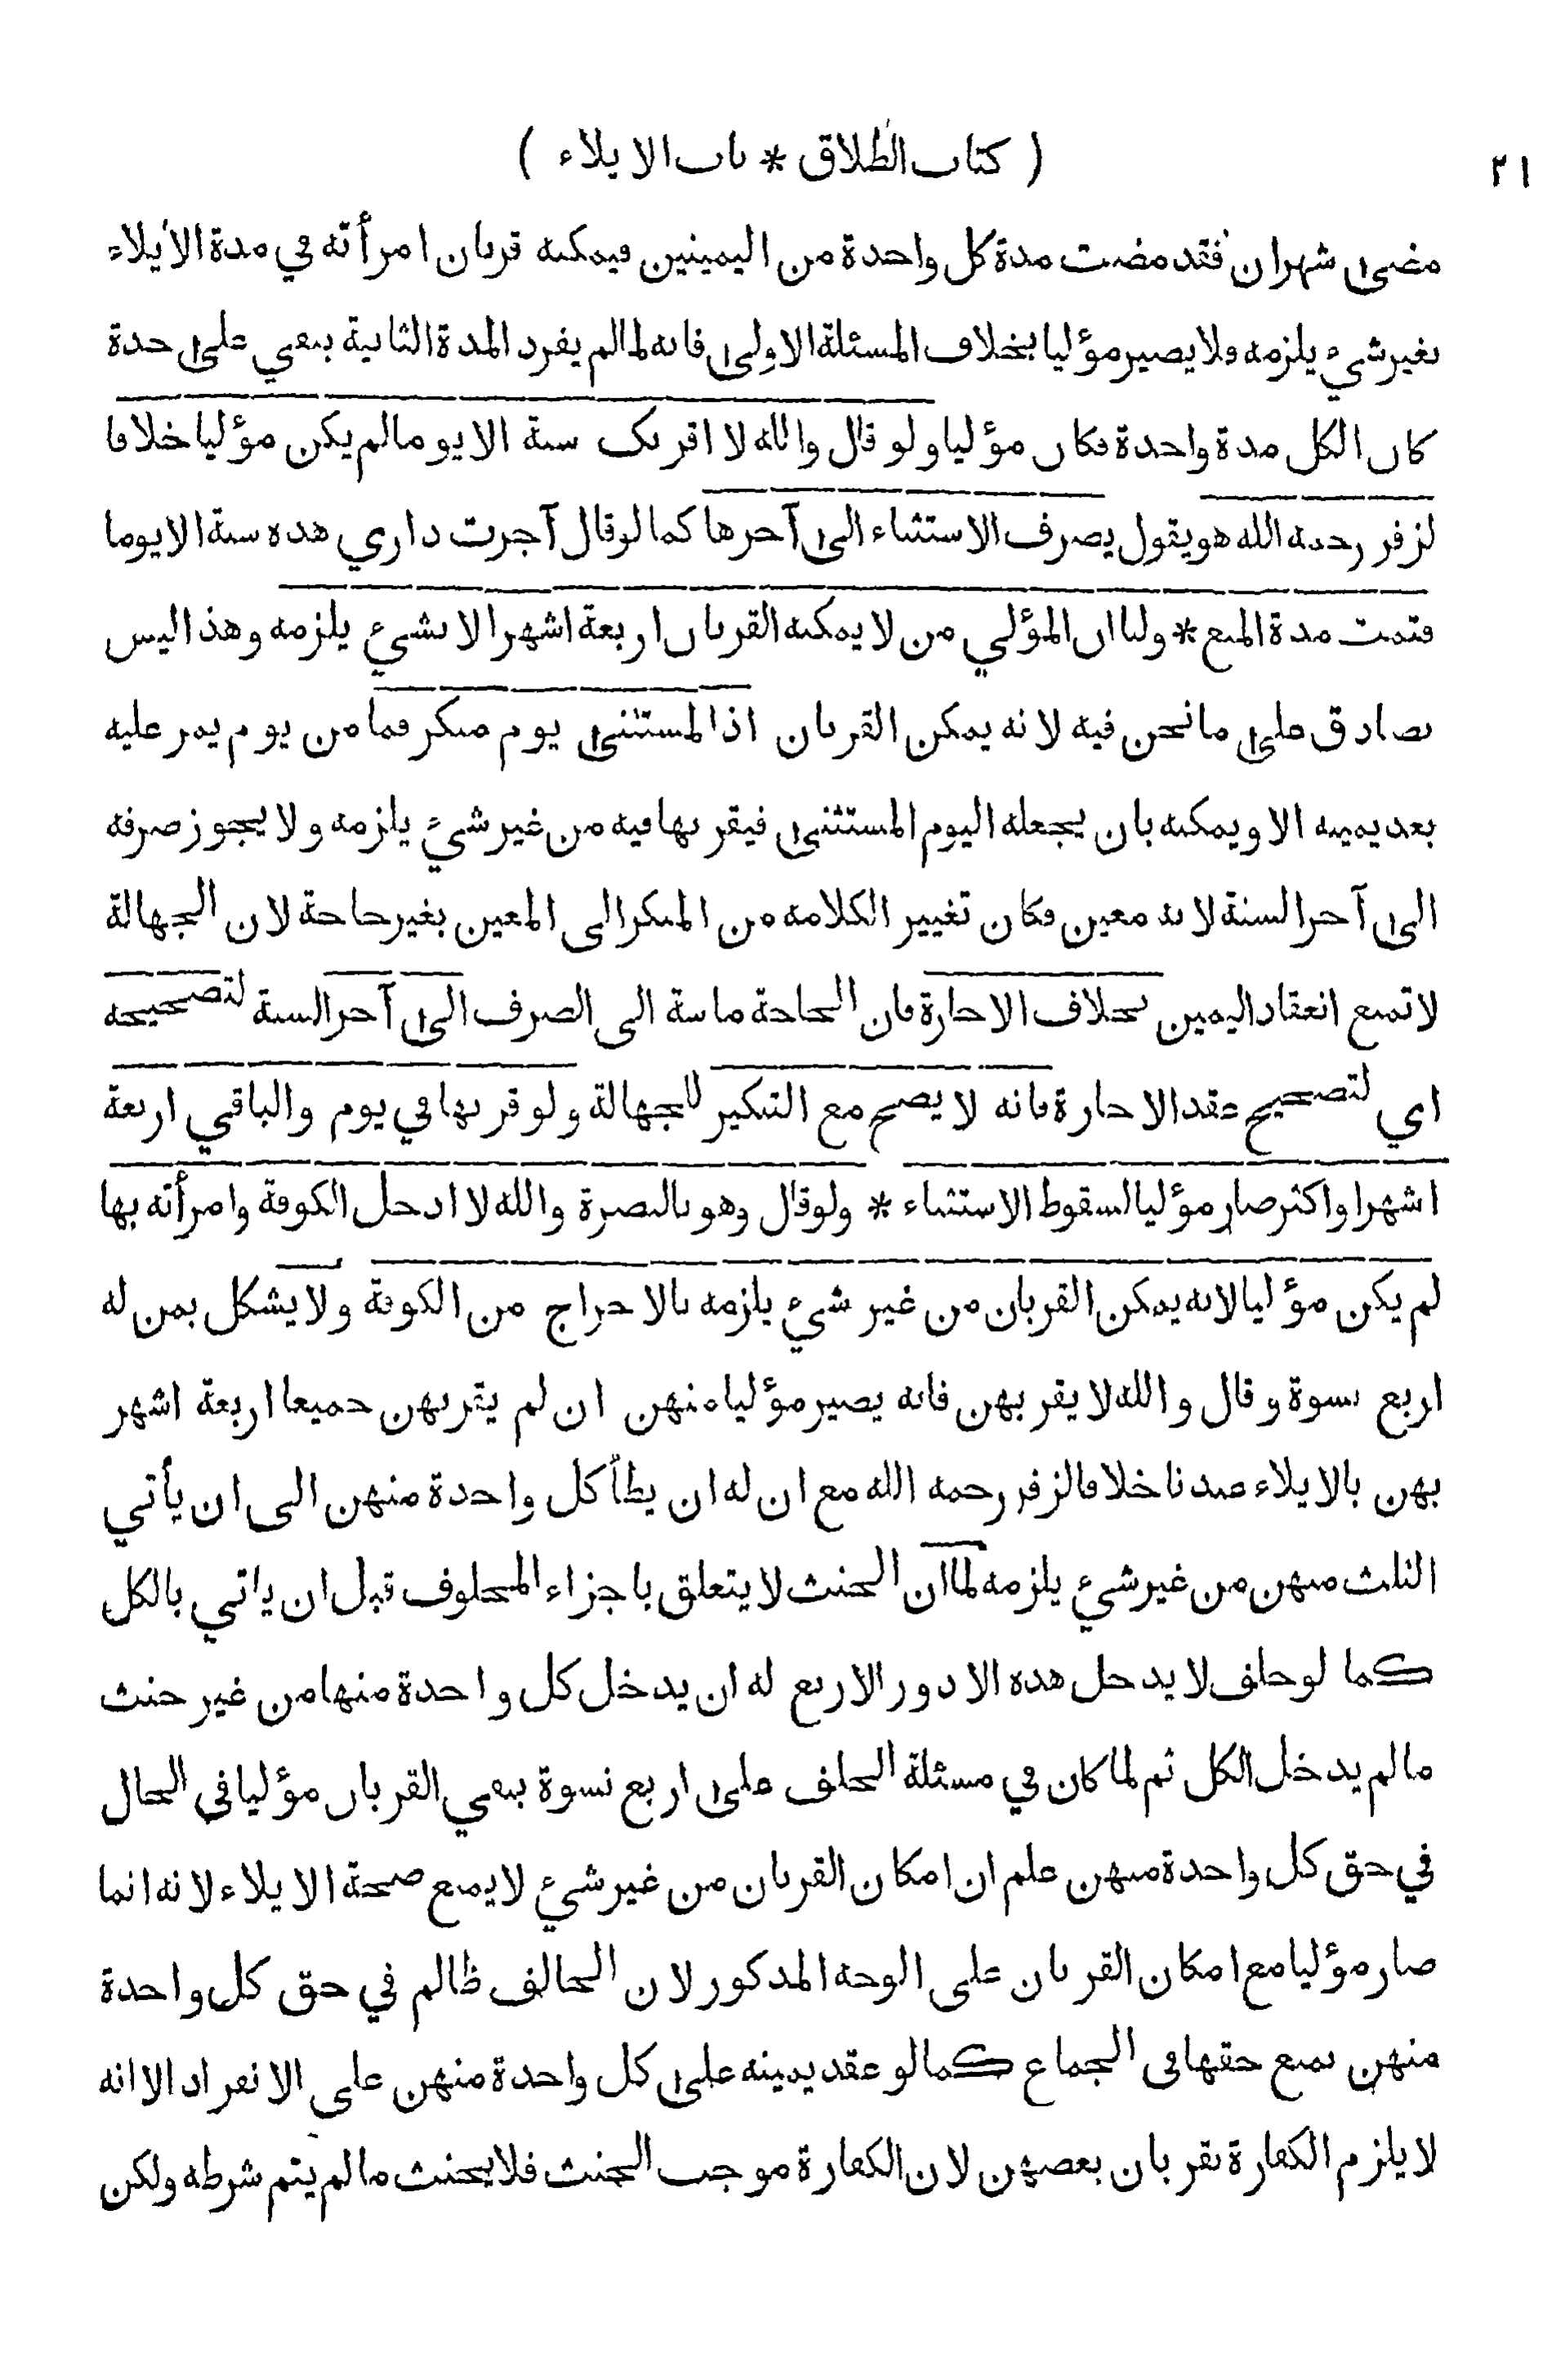 ( كتاب الطلاق * باب الايلاء )
٢١
مضى شهران فقد مضت مدة كل واحدة من اليمينين فيمكنه قربان امرأته في مدة الايلاء
بغير شيء يلزمه ولا يصير مؤليا بخلاف المسئلة الاولى فانه لما لم يفرد المدة الثانية بنفي على حدة
كان الكل مدة واحدة فكان مؤليا ولو قال والله لا اقربك سنة الا يوما لم يكن مؤليا خلافا
لزفر رحمه الله هو يقول يصرف الاستثناء الى آخرها كما لو قال آجرت داري هذه سنة الا يوما
فتمت مدة المنع * ولنا ان المؤلي من لا يمكنه القربان اربعة اشهر الا بشيء يلزمه وهذا ليس
بصادق على ما نحن فيه لانه يمكن القربان اذ المستثنى يوم منكر فما من يوم يمر عليه
بعد يمينه الا ويمكنه بان يجعله اليوم المستثنى فيقربها فيه من غير شيء يلزمه ولا يجوز صرفه
الى آخر السنة لانه معين فكان تغيير الكلامه من المنكر الى المعين بغير حاجة لان الجهالة
لا تمنع انعقاد اليمين بخلاف الاجارة فان الحاجة ماسة الى الصرف الى آخر السنة لتصحيحه
اي لتصحيح عقد الاجارة فانه لا يصح مع التنكير للجهالة ولو قربها في يوم والباقي اربعة
اشهر او اكثر صار مؤليا لسقوط الاستثناء * ولو قال وهو بالبصرة والله لا ادخل الكوفة وامرأته بها
لم يكن مؤليا لانه يمكن القربان من غير شيء يلزمه بالاخراج من الكوفة ولا يشكل بمن له
اربع نسوة وقال والله لا يقربهن فانه يصير مؤليا منهن ان لم يقربهن جميعا اربعة اشهر
بهن بالايلاء عندنا خلافا لزفر رحمه الله مع ان له ان يطأ كل واحدة منهن الى ان يأتي
الثلث منهن من غير شيء يلزمه لما ان الحنث لا يتعلق باجزاء المحلوف قبل ان ياتي بالكل
كما لو حلف لا يدخل هذه الادور الاربع له ان يدخل كل واحدة منها من غير حنث
ما لم يدخل الكل ثم لما كان في مسئلة الحلف على اربع نسوة بنفي القربان مؤليا في الحال
في حق كل واحدة منهن علم ان امكان القربان من غير شيء لا يمنع صحة الايلاء لانه انما
صار مؤليا مع امكان القربان على الوجه المذكور لان الحالف ظالم في حق كل واحدة
منهن بمنع حقها في الجماع كما لو عقد يمينه على كل واحدة منهن على الانفراد الا انه
لا يلزم الكفارة بقربان بعضهن لان الكفارة موجب الحنث فلا يحنث ما لم يتم شرطه ولكن